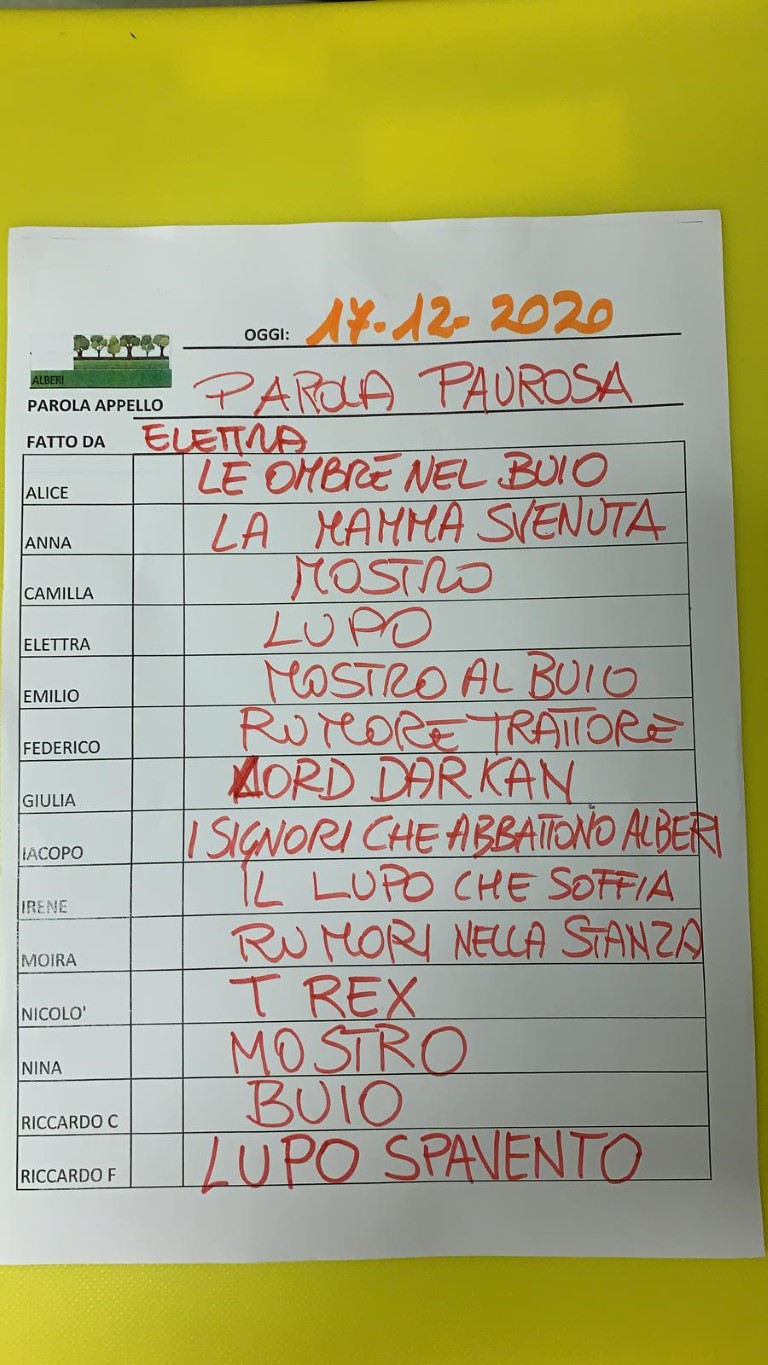 OGGI: 17-12-2020
ALBERI
PAROLA APPELLO PAROLA PAUROSA
FATTO DA ELETTRA
ALICE LE OMBRE NEL BUIO
ANNA LA MAMMA SVENUTA
CAMILLA MOSTRO
ELETTRA LUPO
EMILIO MOSTRO AL BUIO
FEDERICO RUMORE TRATTORE
GIULIA LORD DARKAN
IACOPO I SIGNORI CHE ABBATTONO ALBERI
IRENE IL LUPO CHE SOFFIA
MOIRA RUMORI NELLA STANZA
NICOLO' T REX
NINA MOSTRO
RICCARDO C BUIO
RICCARDO F LUPO SPAVENTO